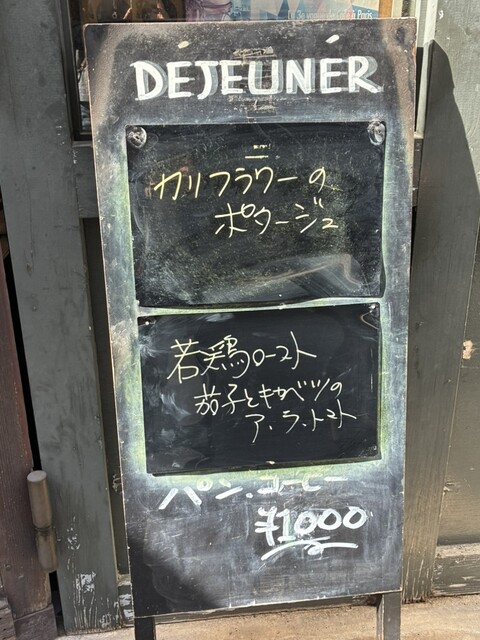 DEJEUNER
カリフラワーの
ポタージュ
若鶏ロースト
茄子とキャベツの
ア.ラ.トマト
パン.コーヒー
¥1000